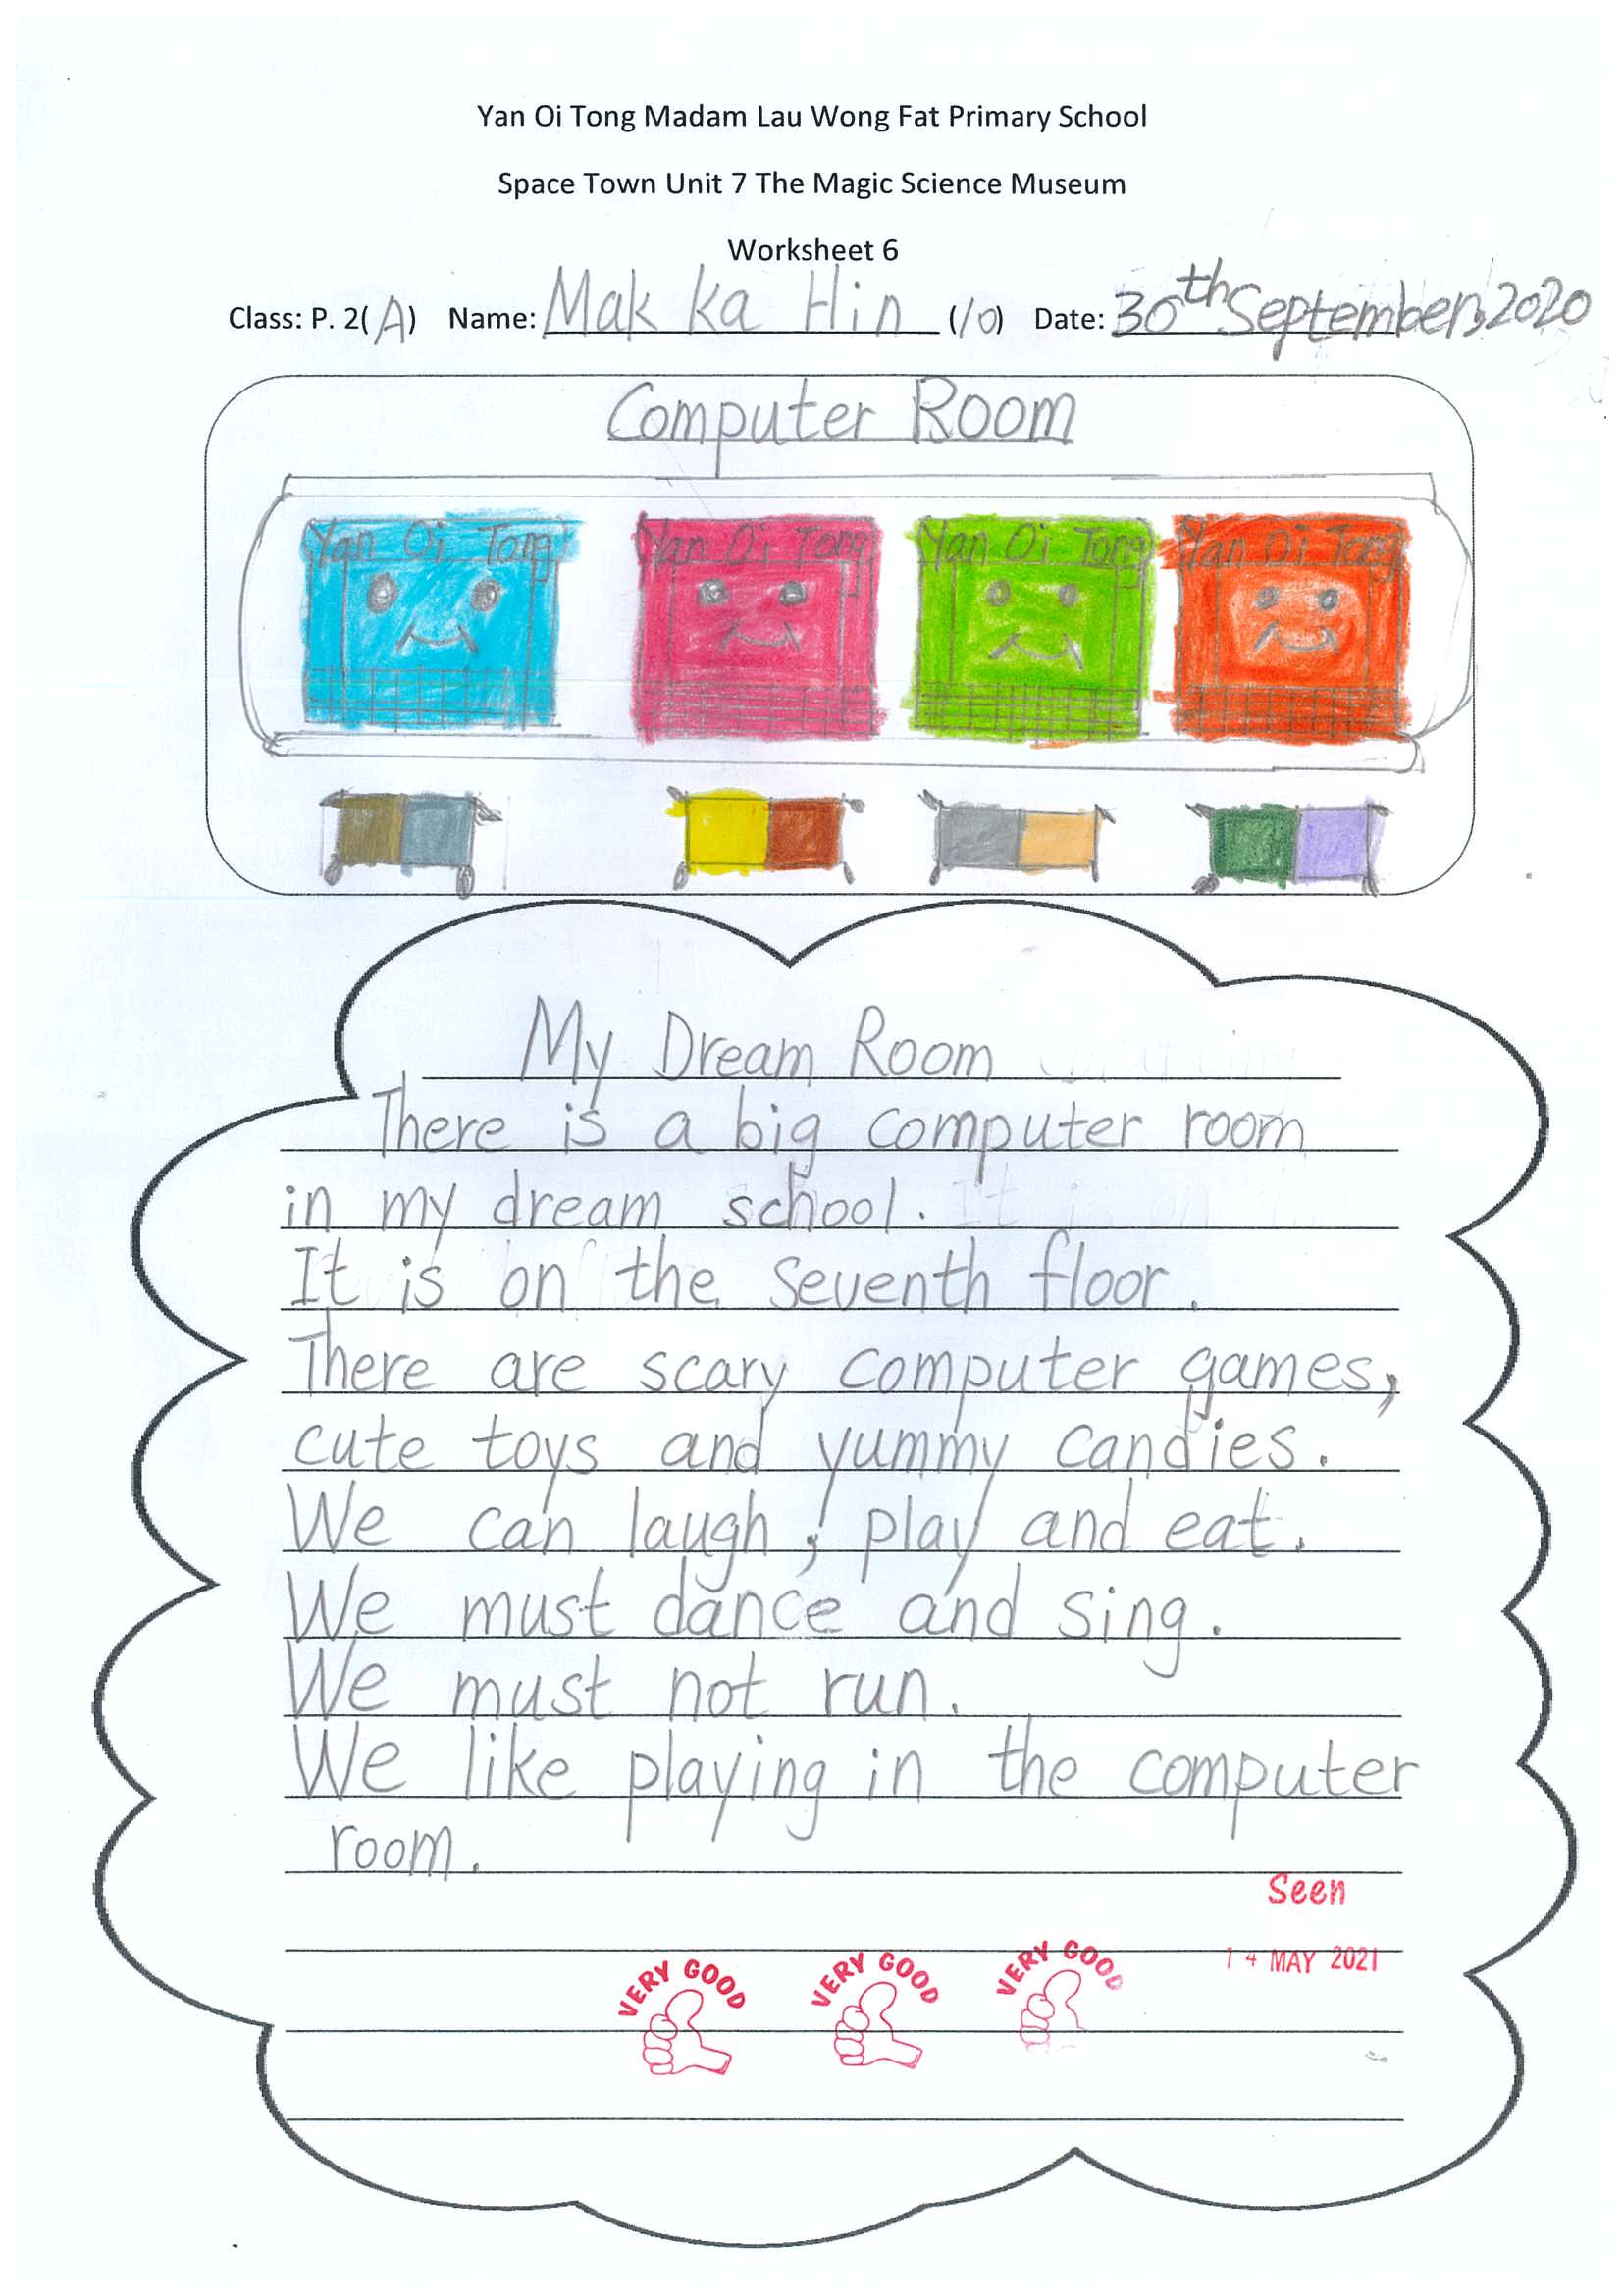 Yan Oi Tong Madam Lau Wong Fat Primary School
Space Town Unit 7 The Magic Science Museum
Worksheet 6
Class: P. 2(A) Name: Mak Ka Hin (10) Date: 30th September, 2020
Computer Room
Yan Oi Tong Yan Oi Tong Yan Oi Tong Yan Oi Tong
My Dream Room
There is a big computer room
in my dream school.
It is on the seventh floor.
There are scary computer games,
cute toys and yummy candies.
We can laugh, play and eat.
We must dance and sing.
We must not run.
We like playing in the computer
room.
Seen
14 MAY 2021
VERY GOOD VERY GOOD VERY GOOD